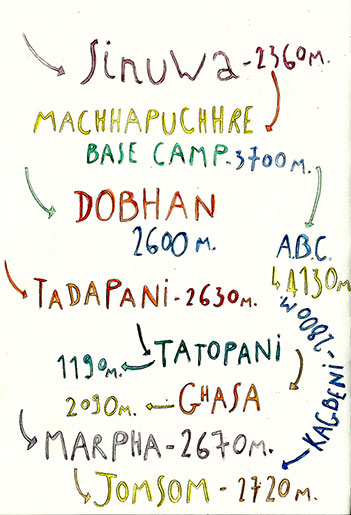 Sinuwa - 2360m.
MACHHAPUCHHRE
BASE CAMP - 3700m.
DOBHAN
2600 m.
A.B.C.
4130m.
TADAPANI - 2630m.
TATOPANI
1190m.
GHASA
2090m.
KAGBENI - 2800m.
MARPHA - 2670m.
JOMSOM - 2720m.